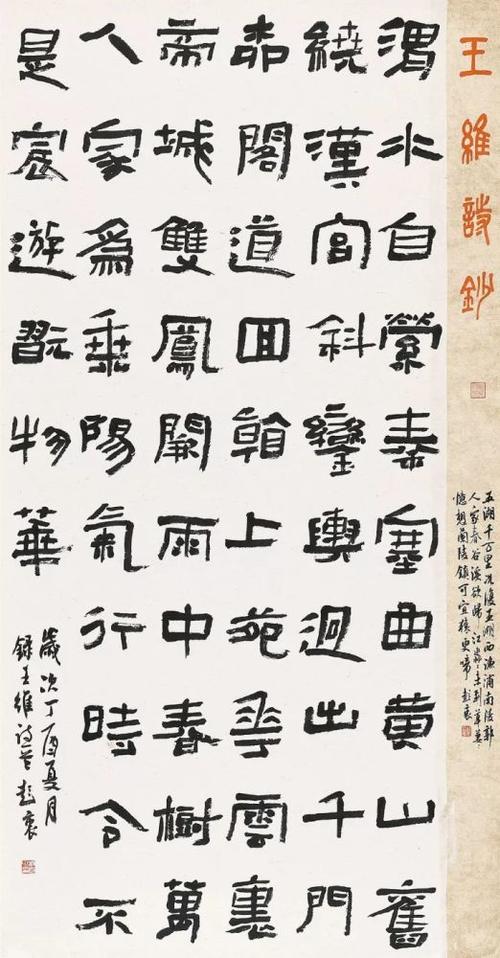 王維詩鈔
五湖千万里况復五湖西漁浦南陵郭
人家春谷溪欲歸江淼淼未到草萋萋
憶想蘭陵鎮可宜猿更啼
渭水自縈秦塞曲黄山舊
繞漢宮斜鑾輿迥出千門
桺閣道回看上苑花雲裏
帝城雙鳳闕雨中春樹萬
人家爲乗陽氣行時令不
是宸遊翫物華
歲次丁酉夏月
錄王維詩